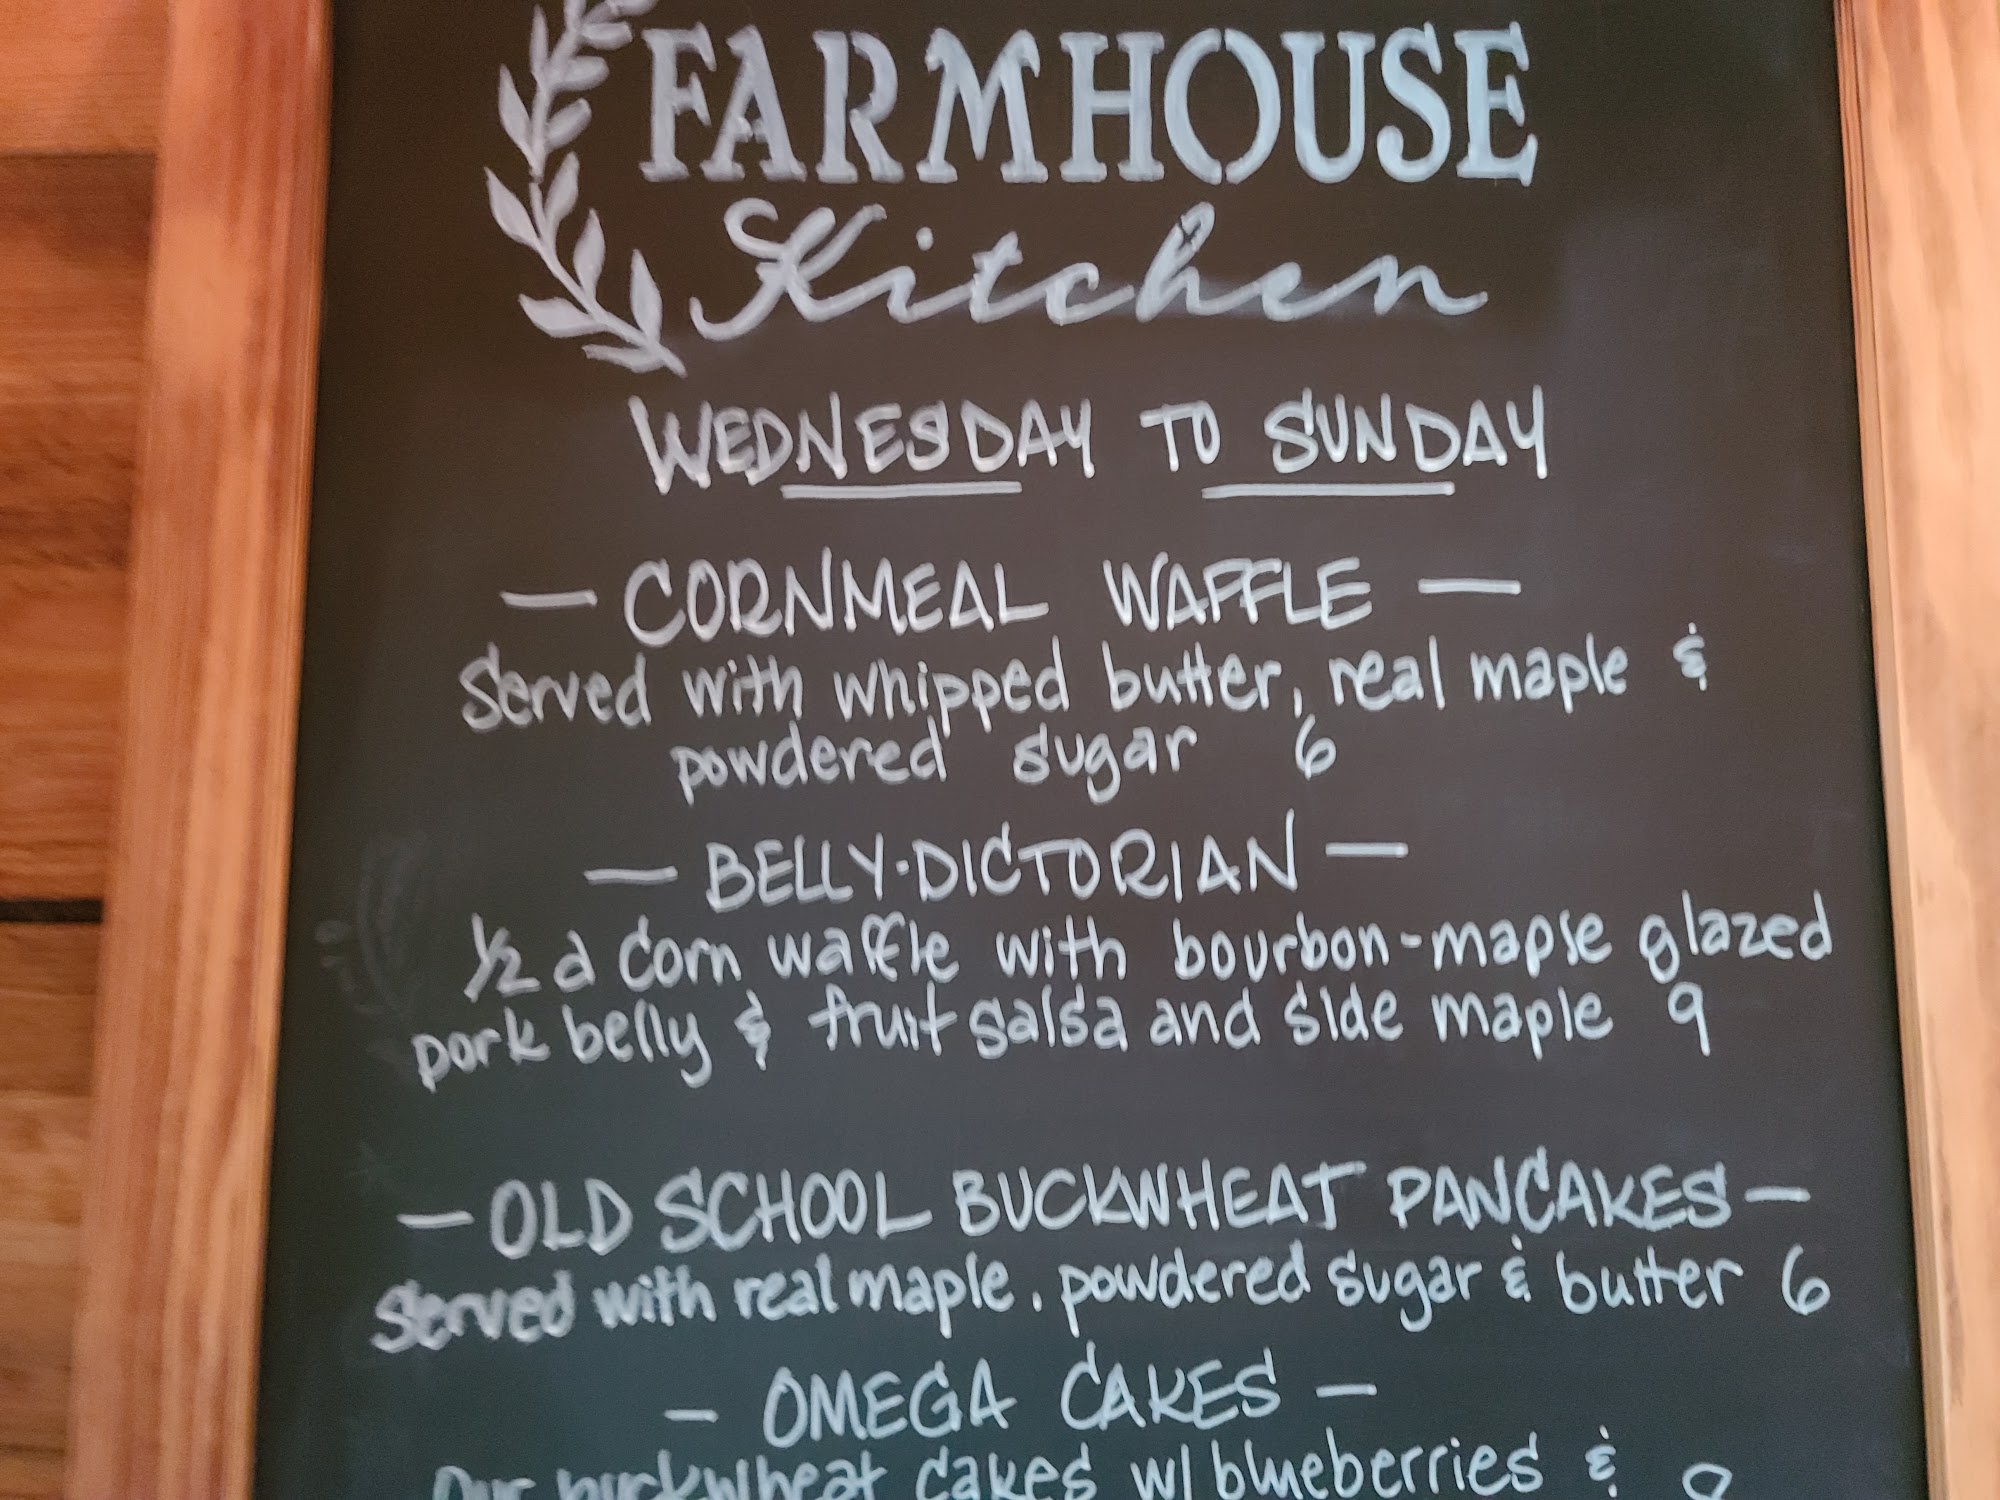 FARMHOUSE
Kitchen
WEDNESDAY TO SUNDAY
— CORNMEAL WAFFLE —
Served with whipped butter, real maple &
powdered sugar 6
— BELLY·DICTORIAN —
1/2 a corn waffle with bourbon-maple glazed
pork belly & fruit salsa and side maple 9
— OLD SCHOOL BUCKWHEAT PANCAKES —
Served with real maple, powdered sugar & butter 6
— OMEGA CAKES —
Our buckwheat cakes w/ blueberries &